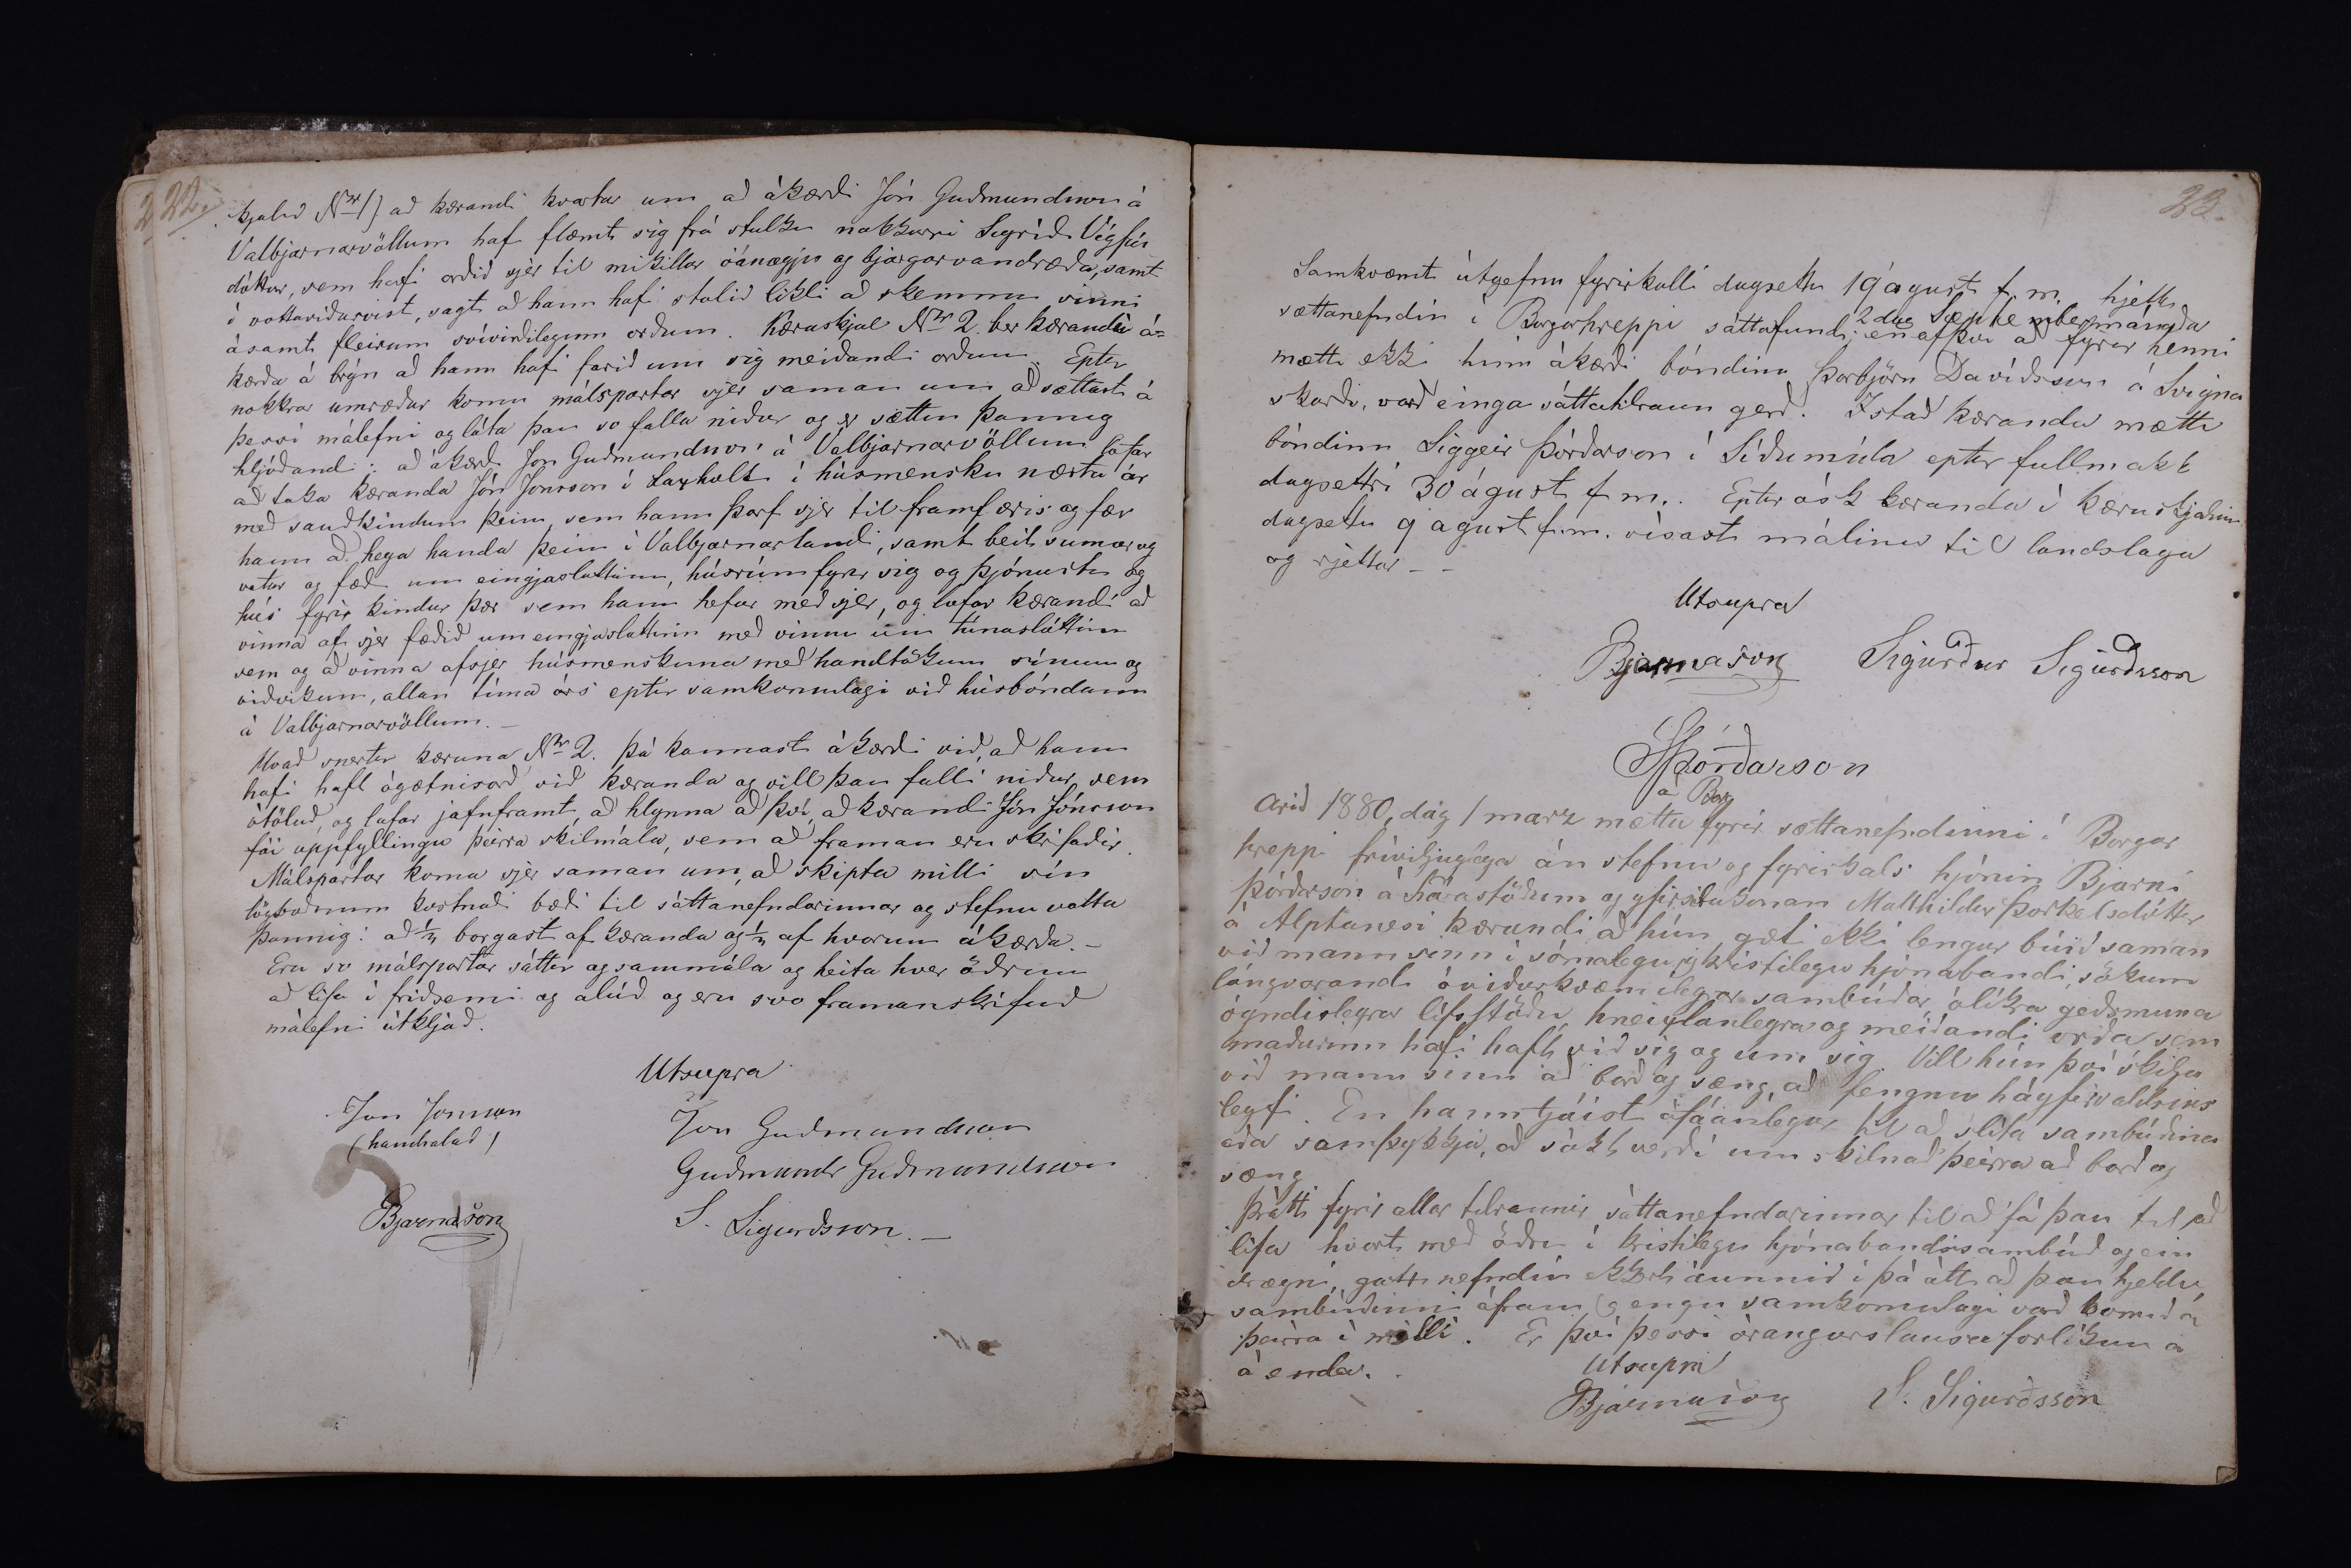 22.
skjalið Nr 1) að kærandi kvartar um að ákærði Jón Guðmundsson á
Valbjarnarvöllum hafi flæmt sig frá stulku nokkurri Sigríði Vigfús
dóttur, sem hafi orðið sjer til mikillar óánægju og bjargarvandræða, samt
í vottaviðurvist, sagt að hann hafi stolið likli að skemmu sinni
ásamt fleirum svívirðilegum orðum. Kæruskjal Nr 2. ber kærandi á=
kærða á brýn að hann hafi farið um sig meiðandi orðum. Eptir
nokkrar umræður komu málspartar sjer saman um að sættast á
þessi málefni og láta þau so falla niður og er sættin þannig
hljóðandi: að ákærði Jón Guðmundsson á Valbjarnarvöllum lofar
að taka kæranda Jón Jónsson í Laxholti í húsmensku næsta ár
með sauðkindum þeim, sem hann þarf sjer til framfæris og fær
hann að heya handa þeim í Valbjarnarlandi, samt beit sumar og
vetur og fæði um eingjasláttinn, húsrúm fyrir sig og þjónustu og
hús fyrir kindur þær sem hann hefur með sjer, og lofar kærandi að
vinna af sjer fæðið um eingjasláttinn með vinnu um túnasláttinn
sem og að vinna afsjer húsmenskuna með handtökum sínum og
viðvikum, allan tíma árs eptir samkomulagi við húsbóndann
á Valbjarnarvöllum. —
Hvað snertir kæruna Nr 2. þá kannast ákærði við, að hann
hafi haft ógætnisorð við kæranda og vill þau falli niður, sem
ótöluð, og lofar jafnframt, að hlynna að því, að kærandi Jón Jónsson
fái uppfyllingu þeirra skilmála, sem að framan eru skrifaðir.
Málspartar koma sjer saman um, að skipta milli sín
lögboðnum kostnaði bæði til sáttanefndarinnar og stefnuvotta
þannig: að 1/3 borgast af kæranda og 1/3 af hvorum ákærða. —
Eru so málspartar sáttir og sammála og heita hver öðrum
að lifa í friðsemi og alúð og eru svo framanskrifuð
málefni útkljáð.
Utsupra
Jón Jónsson
(handsalað)
Jón Guðmundsson
Guðmundr Guðmundsson
Bjarnason
S. Sigurdsson. —
23.
Samkvæmt útgefnu fyrirkalli dagsettu 19 ágúst f. m. hjelt
sættanefndin í Borgarhreppi sáttafund 2 dag September mánaða
en af því að fyrir henni
mætti ekki hinn ákærði bóndinn Þorbjörn Davíðsson á Svigna
skarði, varð einga sáttatilraun gerð. Istað kæranda mætti
bóndinn Siggeir Þórðarson í Síðumúla eptir fullmakt
dagsettri 30 ágúst f. m. Eptir ósk kæranda í kæruskjalinu
dagsettu 9 agust f. m. vísast málinu til landslaga
og rjettar — —
Utsupra
Bjarnason Sigurður Sigurðsson
SÞórðarson
Arið 1880, dag 1 marz mættu á Borg fyrir sættanefndinni í Borgar
hreppi fríviljuglega án stefnu og fyrirkalls hjónin Bjarni
Þórðarson á Lárastöðum og yfirsetukonan Matthildur Þorkelsdóttir
á Alptanesi kærandi að hún geti ekki lengur búið saman
við mann sinn í sómalegu og kristilegu hjónabandi, sökum
lángvarandi óviðurkvæmilegrar sambúðar, ólíkra geðsmuna
óyndislegrar lífsstöðu, hneixlanlegra og meiðandi orða sem
maðurinn hafi haft við sig og um sig. Vill hún því skilja
við mann sinn að borð og sæng, að fengnu háyfirvaldsins
leyfi. En hann tjáist ófáanlegur til að slíta sambúðina
eða samþykkja, að sókt verði um skilnað þeirra að borð og
sæng
Þrátt fyrir allar tilraunir sáttanefndarinnar til að fá þau til að
lifa hvort með öðru í kristilegu hjónabandssambúð og ein
drægni, gatt nefndin ekkert áunnið í þá átt að þau hjeldu
sambúðinni áfram og engu samkomulagi varð komið á
þeirra í milli. Er því þessi árangurslausa forlíkun á
á enda.
Utsupra
Bjarnason S. Sigurðsson